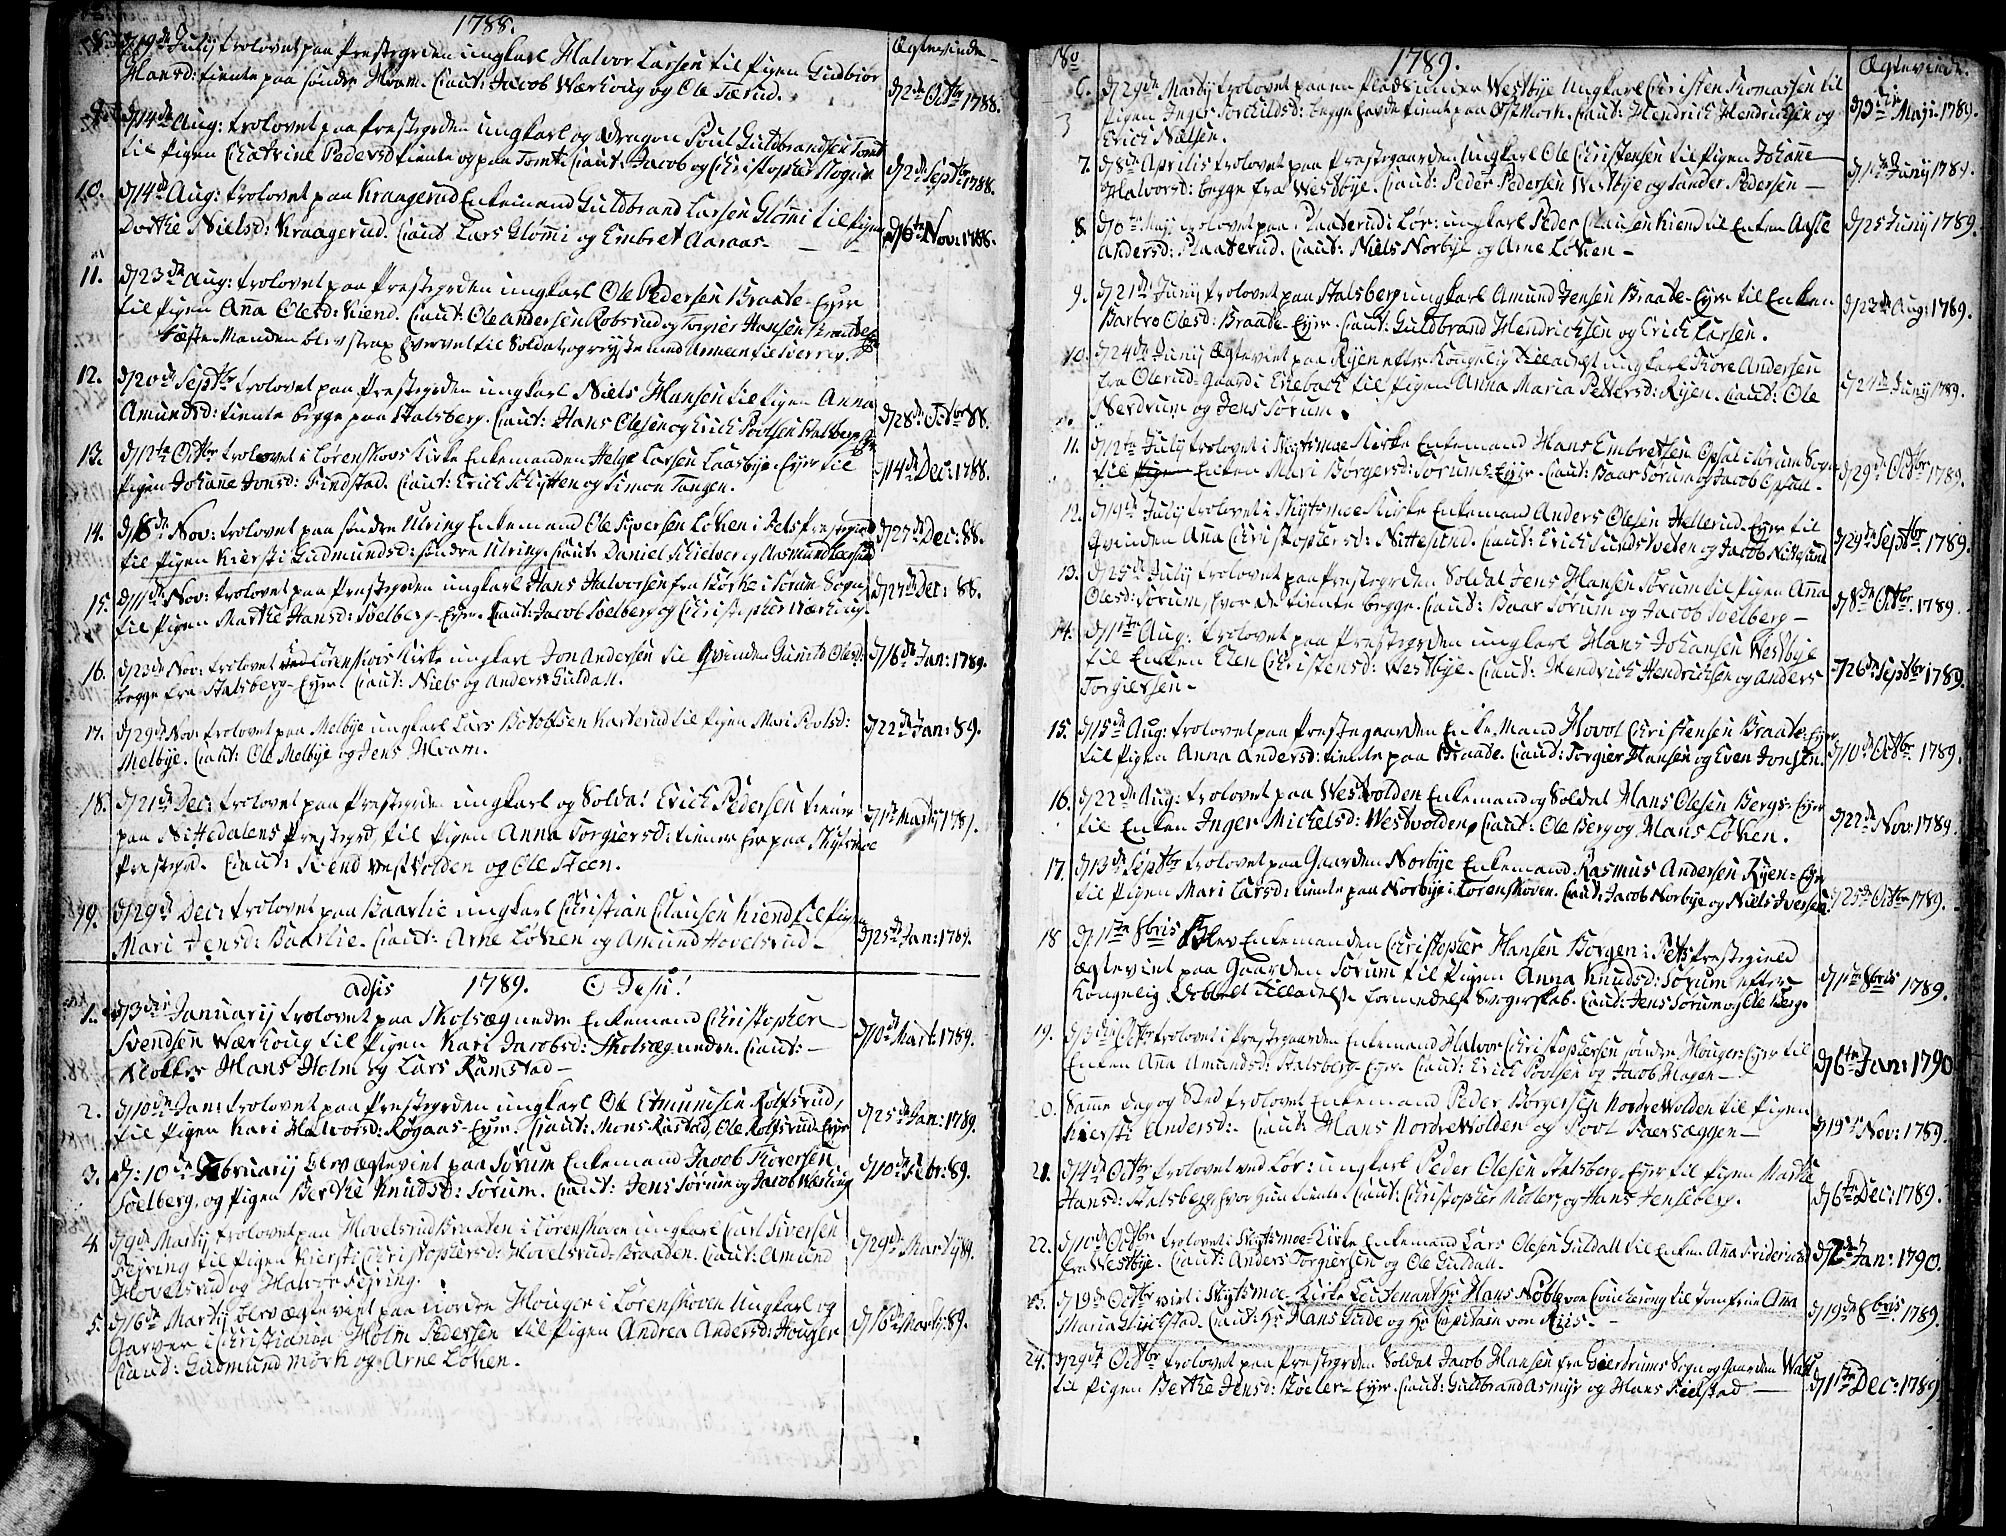 1788.
Ægtevinde
8. d/19de Julij trolovet paa Prestegrden ungkarl Halvor Larsen til Pigen Gudbiør
Hansd: tiente paa søndre Hvam. Caut: Jacob Wærhoug og Ole Tærud.
d/2de Octbr 1788.
9. d/14de Aug: trolovet paa Prestegrden ungkarl og Dragon Poul Guldbrandsen Tomt
til Pigen Chatrine Pedersd tiente og paa Tomt. Caut: Jacob og Christopher Skogen
d/2de Septbr 1788.
10. d/14de Aug: trolovet paa Kraagerud Enkemand Guldbrand Larsen Glømmi til Pigen
Dorthe Nielsd: Kraagerud. Caut Lars Glømmi og Embret Aaraas.
d/6te Nov: 1788.
11. d/23de Aug: trolovet paa Prestegrden ungkarl Ole Pedersen Braate-Eyer
til Pigen Anna Olesd: Kiend. Caut: Ole Andersen Robsrud og Torgier Hansen Braate
Fæste-Manden blev strax hvervet til Soldat og reyste med Armeen til Sverrig.
12. d/20de Septbr trolovet paa Prestegrden ungkarl Niels Hansen til Pigen Anna
Amundsd: tiente begge paa Stalsberg. Caut: Hans Olesen og Erich Poulsen Stalsberg
d/28de Octbr 88.
13. d/12te Octbr trolovet i Lørenskovs Kirke Enkemanden Helge Larsen Laasbye-Eyer til
Pigen Johanne Jonsd: Findstad. Caut: Erich Schytten og Simon Tangen.
d/14de Dec: 1788.
14. d/8de Nov: trolovet paa søndre Ulring Enkemand Ole Siversen Løken i Fets Prestegield
til Pigen Kiersti Gudmundsd: søndre Ulring. Caut: Daniel Schielver og Aasmund
d/27de Dec: 88.
15. d/11de Nov: trolovet paa Prestegrden ungkarl Hans Halvorsen fra Børke i Sørum Sogn
til Pigen Marthe Hansd: Soelberg-Eyer. Caut: Jacob Soelberg og Christopher Værhoug
d/27de Dec: 88.
16. d/23de Nov: trolovet ved Lørenskovs Kirke ungkarl Jon Andersen til Qvinden Gunild Olesd:
begge fra Stalsberg-Eyer. Caut: Niels og Anders Guldall.
d/18de Jan: 1789.
17. d/29de Nov: trolovet paa Melbye ungkarl Lars Botolfsen Karterud til Pigen Mari Poulsd:
Melbye. Caut: Ole Melbye og Jens Hvam.
d/22de Jan: 89.
18. d/21de Dec: trolovet paa Prestegrden ungkarl og Soldat Erich Pedersen tiener
paa Nittedalens Prestegrd, til Pigen Anna Torgiersd: tiener her paa Skytsmoe
Prestegrd. Caut: Svend Vestvolden og Ole Steen.
d/1de Martij 1789.
19. d/29de Dec: trolovet paa Baarlie ungkarl Christian Clausen Kiend til Pigen
Mari Jensd: Baarlie. Caut: Arne Løken og Amund Hovelsrud
d/25de Jan: 1789.
adsis 1789. O Jesu!
1. d/3die Januarij trolovet paa Skolsæg nedre Enkemand Christopher
Svendsen Wærhoug til Pigen Kari Jacobsd: Skolsæg neden. Caut:
Klokker Hans Holm og Lars Ramstad
d/10de Mart: 1789.
2. d/10de Jan: trolovet paa Prestegrden ungkarl Ole Edmundsen Rolfsrud,
til Pigen Kari Halvorsd: Røgaas-Eyer. Caut: Mons Riistad, Ole Rolfsrud-Eyer
d/25de Jan: 1789.
3. d: 10de Februarij blev ægteviet paa Sørum Enkemand Jacob Toversen
Soelberg, og Pigen Berthe Knudsd: Sørum. Caut: Jens Sørum og Jacob Wesling
d/10de Febr: 89.
4. d/9de Martij trolovet paa Hovelsrud-Braaten i Lørenskoven ungkarl Carl Siversen
Reyring til Pigen Kiersti Christophersd: Hovelsrud-Braaden. Caut: Amund
Hovelsrud og Halvor Reyring.
d/29de Martij 89.
5. d/16de Martij blev ægteviet paa nordre Houger i Lørenskoven Ungkarl og
Garver i Christiania Holm Pedersen til Pigen Andrea Andersd: Houger
Caut: Gudmund Mørk og Arne Løken.
d/16de Martij 89.
No
1789.
Ægtevinde.
6. d/29de Martij trolovet paa en Plads under Westbye Ungkarl Christen Thomassen til
Pigen Inger Torchildsd: begge havde tient paa Ost Mork. Caut: Hendrich Hendrichsen og
Erich Nielsen.
d/3die Maji 1789.
7. d/8de Aprilis trolovet paa Prestegaarden Ungkarl Ole Christensen til Pigen Johane
Halvorsd: begge fra Westbye. Caut: Peder Pedersen Westbye og Sander Pedersen
d/1de Juny 1789.
8. d/6te Maji trolovet paa Plaaterud i Lør: ungkarl Peder Clausen Kiend til Enken Aasle
Andersd: Plaaterud. Caut: Niels Norbye og Arne Løken
d/25 Juny 1789.
9. d/21de Juny trolovet paa Stalsberg ungkarl Amund Jensen Braate-Eyer til Enken
Barbro Olesd: Braate-Eyer. Caut: Guldbrand Hendrichsen og Erich Larsen.
d/23de Aug: 1789.
10. d/24de Juny Ægteviet paa Ryen efter Kongelig Tilladelse ungkarl Tore Andersen
fra Olerud-Gaard i Enebach til Pigen Anna Maria Pettersd: Ryen. Caut: Ole
Nerdrum og Jens Sørum.
d/24de Juny 1789.
11. d/12te July trolovet i Skytsmoe Kirke Enkemand Hans Embretsen Opsal i Sørum Sogn
til Enken Mari Borgersd: Sørums-Eyer. Caut: Baar Sørum og Jacob Opsall
d/29de Octbr 1789.
12. d/19de July trolovet i Skytsmoe Kirke Enkemand Anders Olesen Hellerud-Eyer til
Qvinden Ana Christophersd: Nittesund. Caut: Erich Sundsveden og Jacob Nittesund
d/29de Septbr 1789.
13. d/25de July trolovet paa Prestegrden Soldat Jens Hansen Sørum til Pigen Ana
Olesd: Sørum, hvor de tiente begge. Caut: Baar Sørum og Jacob Soelberg
d/8de Octbr. 1789.
14. d/11te Aug: trolovet paa Prestegrden ungkarl Hans Johansen Westbye
til Enken Elen Christensd: Westbye. Caut: Hendrich Hendrichsen og Anders
Torgiersen.
d/26de Septbr 1789.
15. d/15de Aug: trolovet paa Prestegaarden Enke Mand Hovol Christensen Braate-Eyer
til Pigen Anna Andersd: tiente paa Braate. Caut: Torgier Hansen og Even Jonsen.
d/10de Octbr 1789.
16. d/22de Aug: trolovet paa Westvolden Enkemand og Soldat Hans Olesen Bergs-Eyer
til Enken Inger Michelsd: Westvolden. Caut: Ole Berg og Hans Løken.
d/22de Nov: 1789.
17. d/13de Septbr trolovet paa Gaarden Norbye Enkemand Rasmus Andersen Ryen-Eyer
til Pigen Mari Larsd: tiente paa Norbye i Lørenskoven. Caut: Jacob Norbye og Niels Iversen
d/25de Octbr 1789.
18 d/1ste 8bris Blev Enkemanden Christopher Hansen Børgen i Fets Prestegield
ægteviet paa Gaarden Sørum til Pigen Anna Knudsd: Sørum efter
Kongelig Tilladelse formedelst Svogerskab. Caut: Jens Sørum og Ole Berg
d/1te 8bris 1789.
19. d/3die Octbr trolovet i Prestegaarden Enkemand Halvor Christophersen søndre Houger-Eyer til
Enken Ana Amundsd: Stalsberg-Eyer. Caut: Erich Poulsen og Jacob Hagen
d/6te Jan: 1790
20. Same Dag og Sted trolovet Enkemand Peder Børgersen Nordre Wolden til Pigen
Kiersti Andersd: Caut: Hans Nordre Wolden og Povl Faersæggen
d/19de Nov: 1789.
21. d/4de Octbr trolovet ved Lør: ungkarl Peder Olesen Stalsberg-Eyer til Pigen Marthe
Hansd: Stalsberg, hvor hun tiente. Caut: Christopher Møller, og Hans Jenseberg.
d/6te Dec: 1789.
22. d/10de Octbr trolovet i Skytsmoe-Kirke Enkemand Lars Olesen Guldall til Enken Ana Friderichsd
fra Westbye. Caut: Anders Torgiersen og Ole Guldall.
Jan: 1790.
23. d/19de Octbr viet i Skytsmoe-Kirke Leutenant Hr: Hans Nobly von Couicheron til Jomfrue Ana
Maria Caut: Hr Hans Gude og Hr Capitain von Kiis.
d/19de 8bris 1789.
24. d/29de Octbr trolovet paa Prestegrden Soldat Jacob Hansen fra Gierdrums Sogn og Gaarden
til Pigen Berthe Jensd: Bøeler-Eyer. Caut: Guldbrand Asmyr og Hans Kielstad
d/11te Dec: 1789